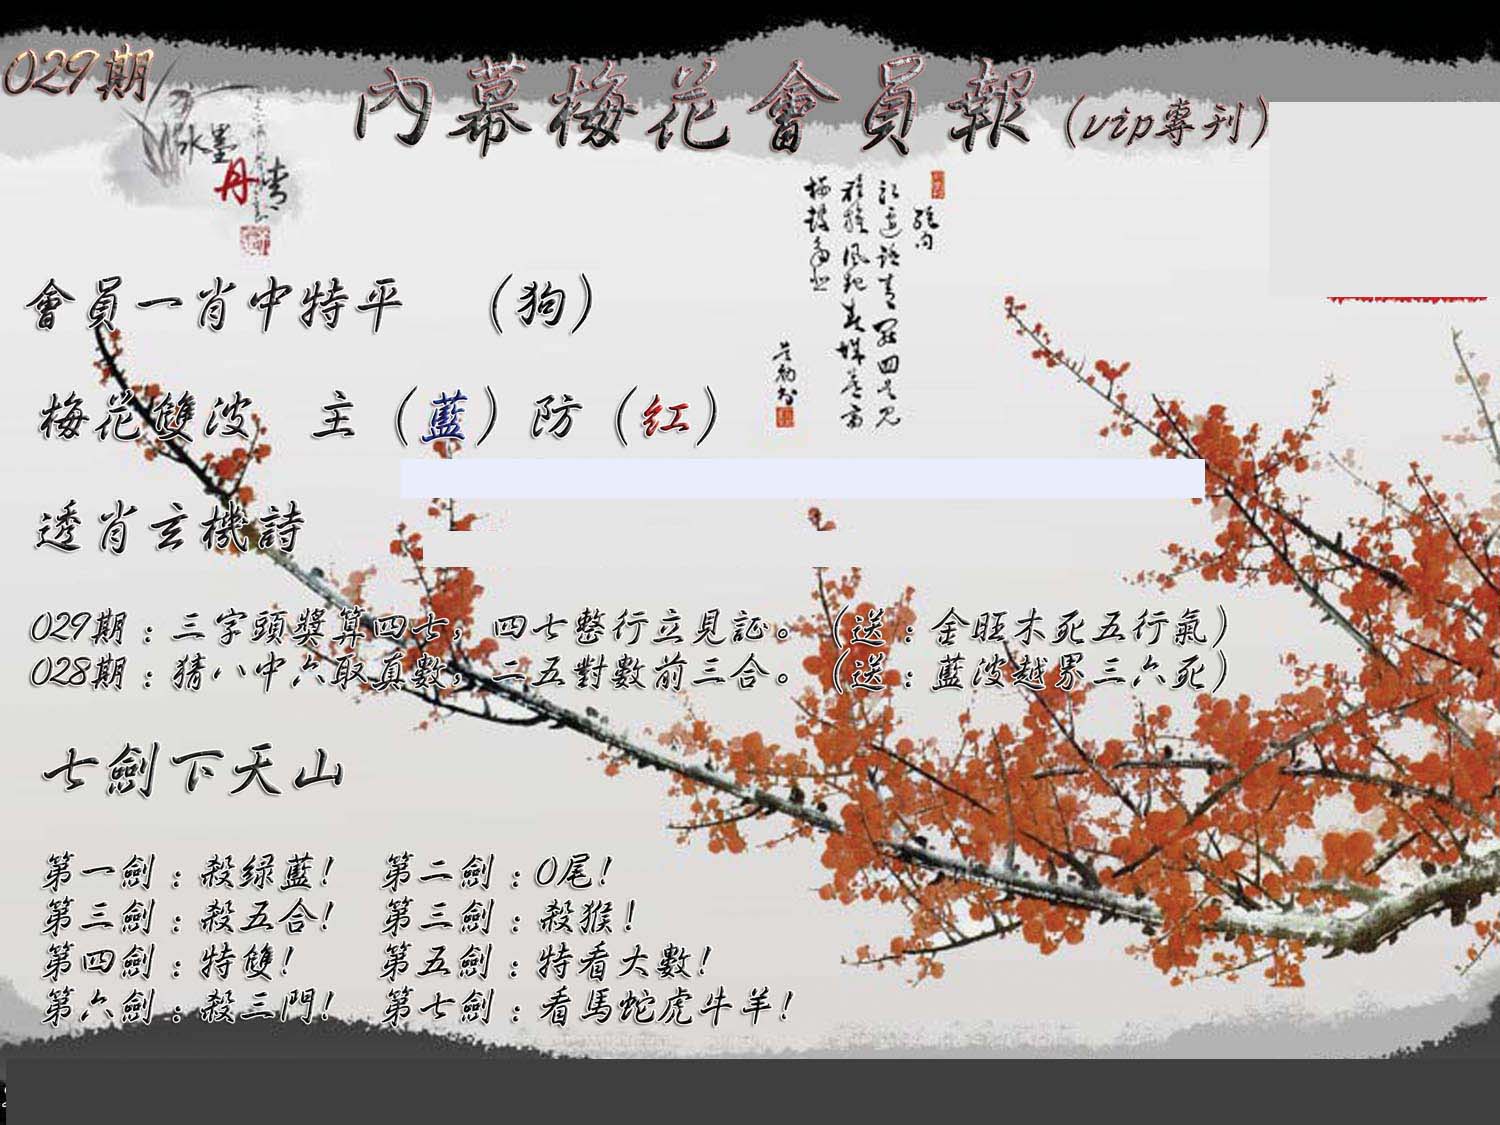 029期
內幕梅花會員報(vip專刊)
水墨
丹青
會員一肖中特平 (狗)
梅花雙波 主(藍)防(红)
透肖玄機詩
029期:三字頭獎算四七,四七整行立見証。(送:金旺木死五行氣)
028期:猜八中六取真數,二五對數前三合。(送:藍波越界三六死)
七劍下天山
第一劍:殺绿藍! 第二劍:0尾!
第三劍:殺五合! 第三劍:殺猴!
第四劍:特雙! 第五劍:特看大數!
第六劍:殺三門! 第七劍:看馬蛇虎牛羊!